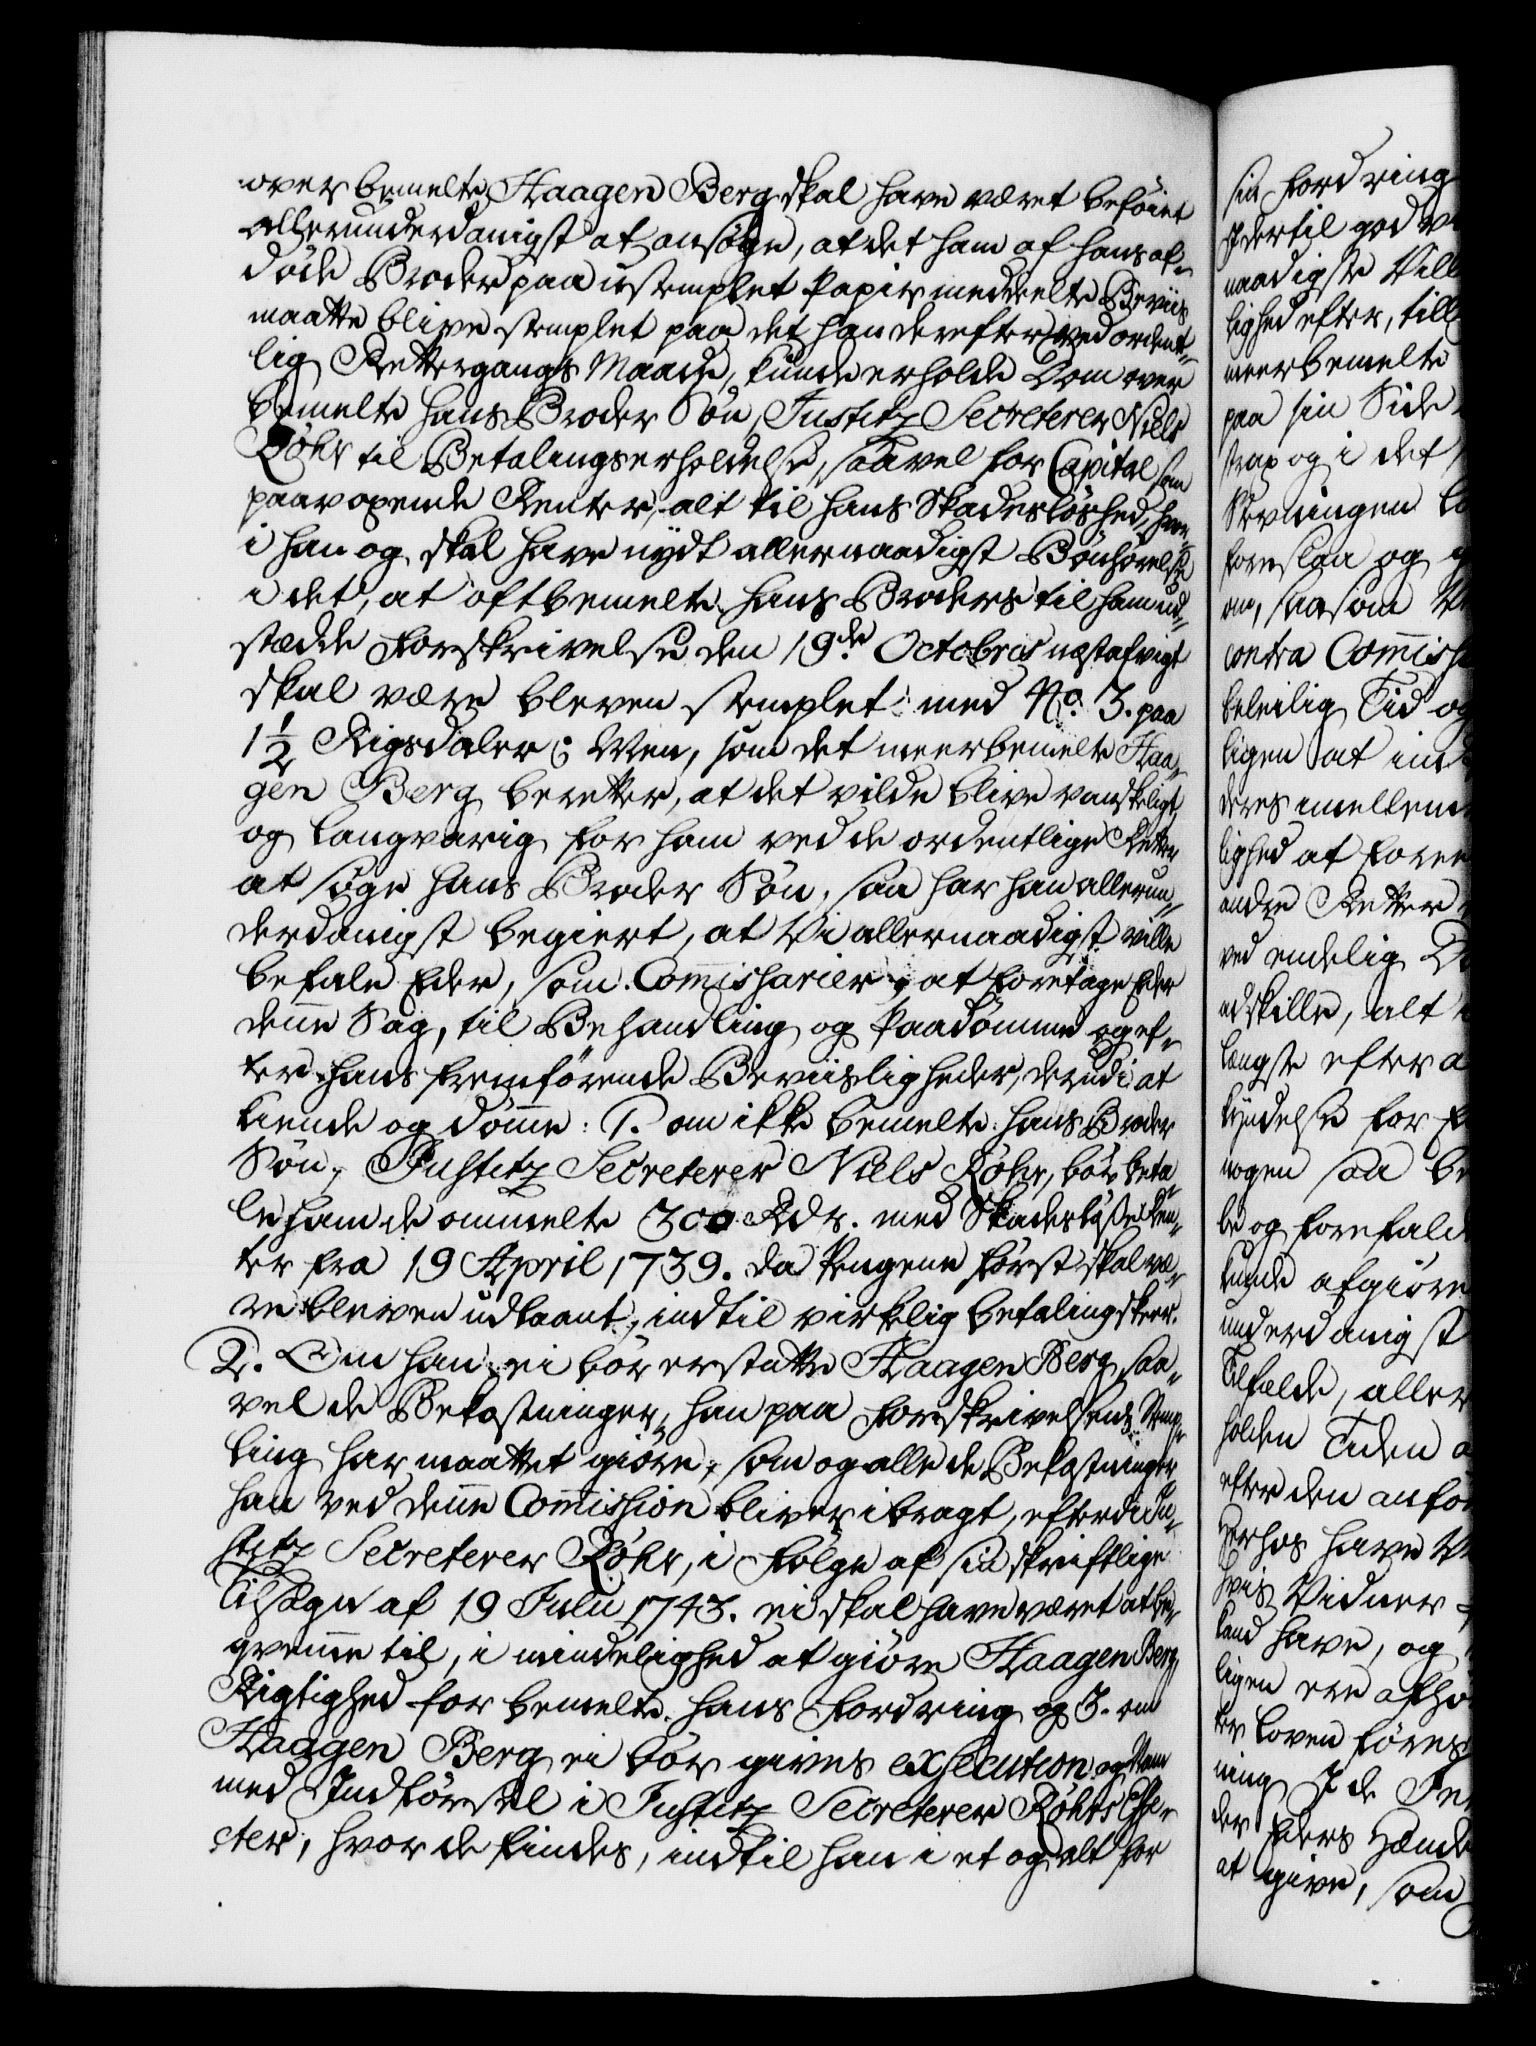 over bemelte Haagen Berg skal have været beføiet
allerunderdanigst at ansøge, at det ham af hans af-
døde Broder paa ustemplet Papir meddeelte Beviis
maatte blive stemplet paa det han derefter ved ordent-
lig Rettergangs Maade, kunde erholde Dom over
bemelte hans Broder Søn, Justitz Secreterer Niels
Røhr til Betalings erholdelse, saavel for Capital som
paavoxende Renter, alt til hans Skadesløshed, hvor-
i han og skal have nydt allernaadigst Bønhørelse
i det, at oftbemelte hans Broders til ham ud-
stædde Forskrivelse den 19de Octobris næstafvigt
skal være bleven stemplet med No. 3. paa
1½ Rigsdaler; Men, som det meerbemelte Haa-
gen Berg beretter, at det vilde blive vanskeligt
og langvarig for ham ved de ordentlige Retter
at søge hans Broder Søn, saa har han allerun-
derdanigst begiert, at Vi allernaadigst ville
befale Eder, som Commissarier, at foretage Eder
denne Sag, til Behandling og Paadømme og ef-
ter hans fremførende Beviisligheder, derudi at
kiende og dømme: 1. om ikke bemelte hans Broder
Søn, Justitz Secreterer Niels Røhr, bør beta-
le ham de ommelte 300 Rdr. med Skadesløse Ren-
ter fra 19 April 1739. da Pengene først skal væ-
re bleven udlaant, indtil virkelig betaling skeer.
2. Om han ei bør erstatte Haagen Berg, saa-
vel de Bekostninger, han paa Forskrivelsens Stemp-
ling har maattet giøre, som og alle de Bekostninger
han ved denne Commission bliver ibragt, efterdi Ju-
stitz Secreterer Røhr, i Følge af sin skriftlige
Tilsagn af 19 Julii 1743. ei skal have været at be-
qvemme til, i mindelighed at giøre Haagen Berg
Rigtighed for bemelte hans Fordring og 3. om
Haagen Berg ei bør gives execution og Nam
med Indførsel i Justitz Secreterer Røhrs Effe-
cter, hvor de findes, indtil han i et og alt for
sin Fordring
Ide til god
naadigste Vill
lighed efter, till
meerbemelte
paa sin Side
strax og i det
Skrivningen
foreslaa og
om, saasom
contra Commiss
beleilig Tid og
ligen at ind
deres imellem
lighed at foree
andre Retter
ved endelig
adskille, alt
længste efter
kyndelse for
nogen saa be
be og forefald
kunde afgiøre
underdanigst
Tilfælde, aller
holden Tiden
efter den anfør
Herhos have
hvis Vidner
kand have, og
ligen ere afhø
ter Loven føres
ning I de
der Eders Hænde
at give, som